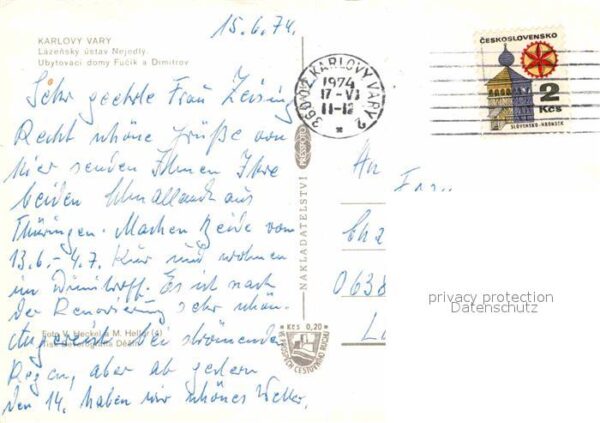 15.6.74.
KARLOVY VARY
Lázeňský ústav Nejedlý
Ubytovací domy Fučík a Dimitrov
Sehr geehrte Frau Zeising
Recht schöne Grüße von
hier senden Ihnen Ihre
beiden aus
Thüringen. Machen beide vom
13.6.- 4.7. Kur und wohnen
im Dimitroff. Es ist nach
der Renovierung sehr schön.
Angereist bei strömenden
Regen, aber ab gestern
den 14. haben wir schönes Wetter.
Foto V. Heckel a M. Heller (4)
Kčs 0,20
NAKLADATELSTVÍ
PRESSFOTO
360 02 KARLOVY VARY 2
1974
17-VI
11-12
ČESKOSLOVENSKO
2
Kčs
SLOVENSKO-HRONSEK
An
Fra
0638
privacy protection
Datenschutz